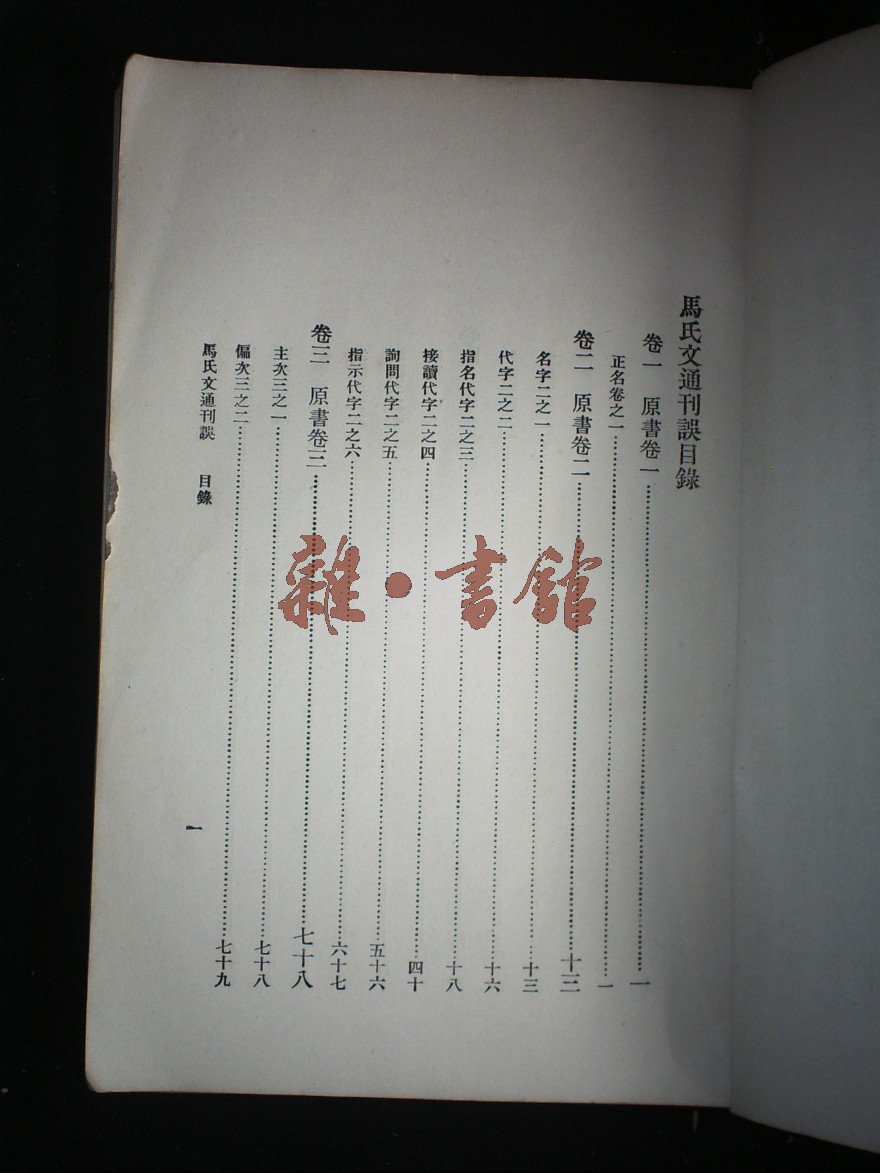 馬氏文通刊誤目錄
卷一 原書卷一………一
正名卷之一………一
卷二 原書卷二………十三
名字二之一………十三
代字二之二………十六
指名代字二之三………十八
接讀代字二之四………四十
詢問代字二之五………五十六
指示代字二之六………六十七
卷三 原書卷三………七十八
主次三之一………七十八
偏次三之二………七十九
馬氏文通刊誤 目錄
一
雜·書館